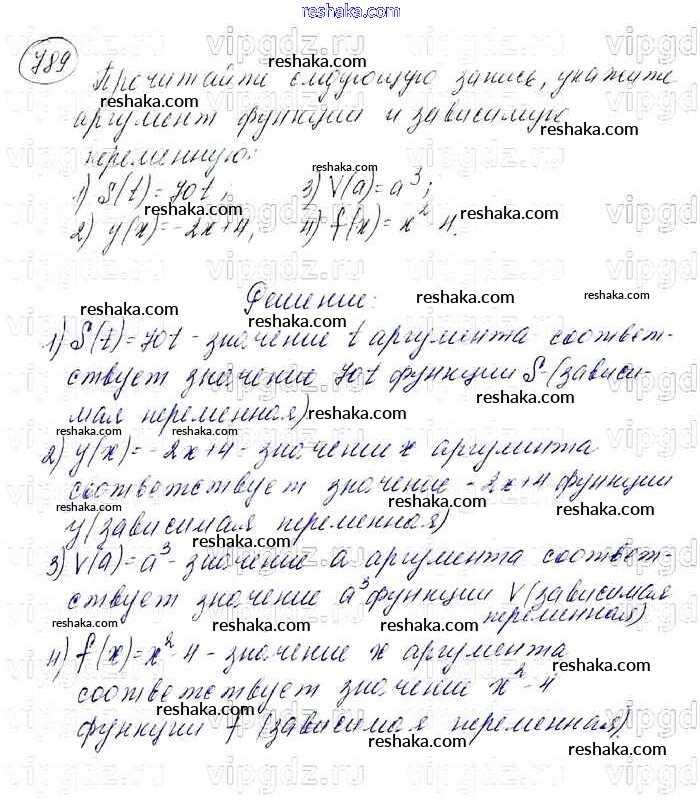 789
Прочитайте следующую запись, укажите
аргумент функции и зависимую
переменную:
1) S(t)=70t; 3) V(a)=a³;
2) y(x)=-2x+4; 4) f(x)=x²-4.
Решение:
1) S(t)=70t - значение t аргумента соответ-
ствует значение 70t функции S-(зависи-
мая переменная)
2) y(x)=-2x+4 - значении x аргумента
соответствует значение -2x+4 функции
y (зависимая переменная)
3) V(a)=a³ - значение a аргумента соответ-
ствует значение a³ функции V (зависимая
переменная)
4) f(x)=x²-4 - значение x аргумента
соответствует значение x²-4
функции f (зависимая переменная).
reshaka.com
vipgdz.ru